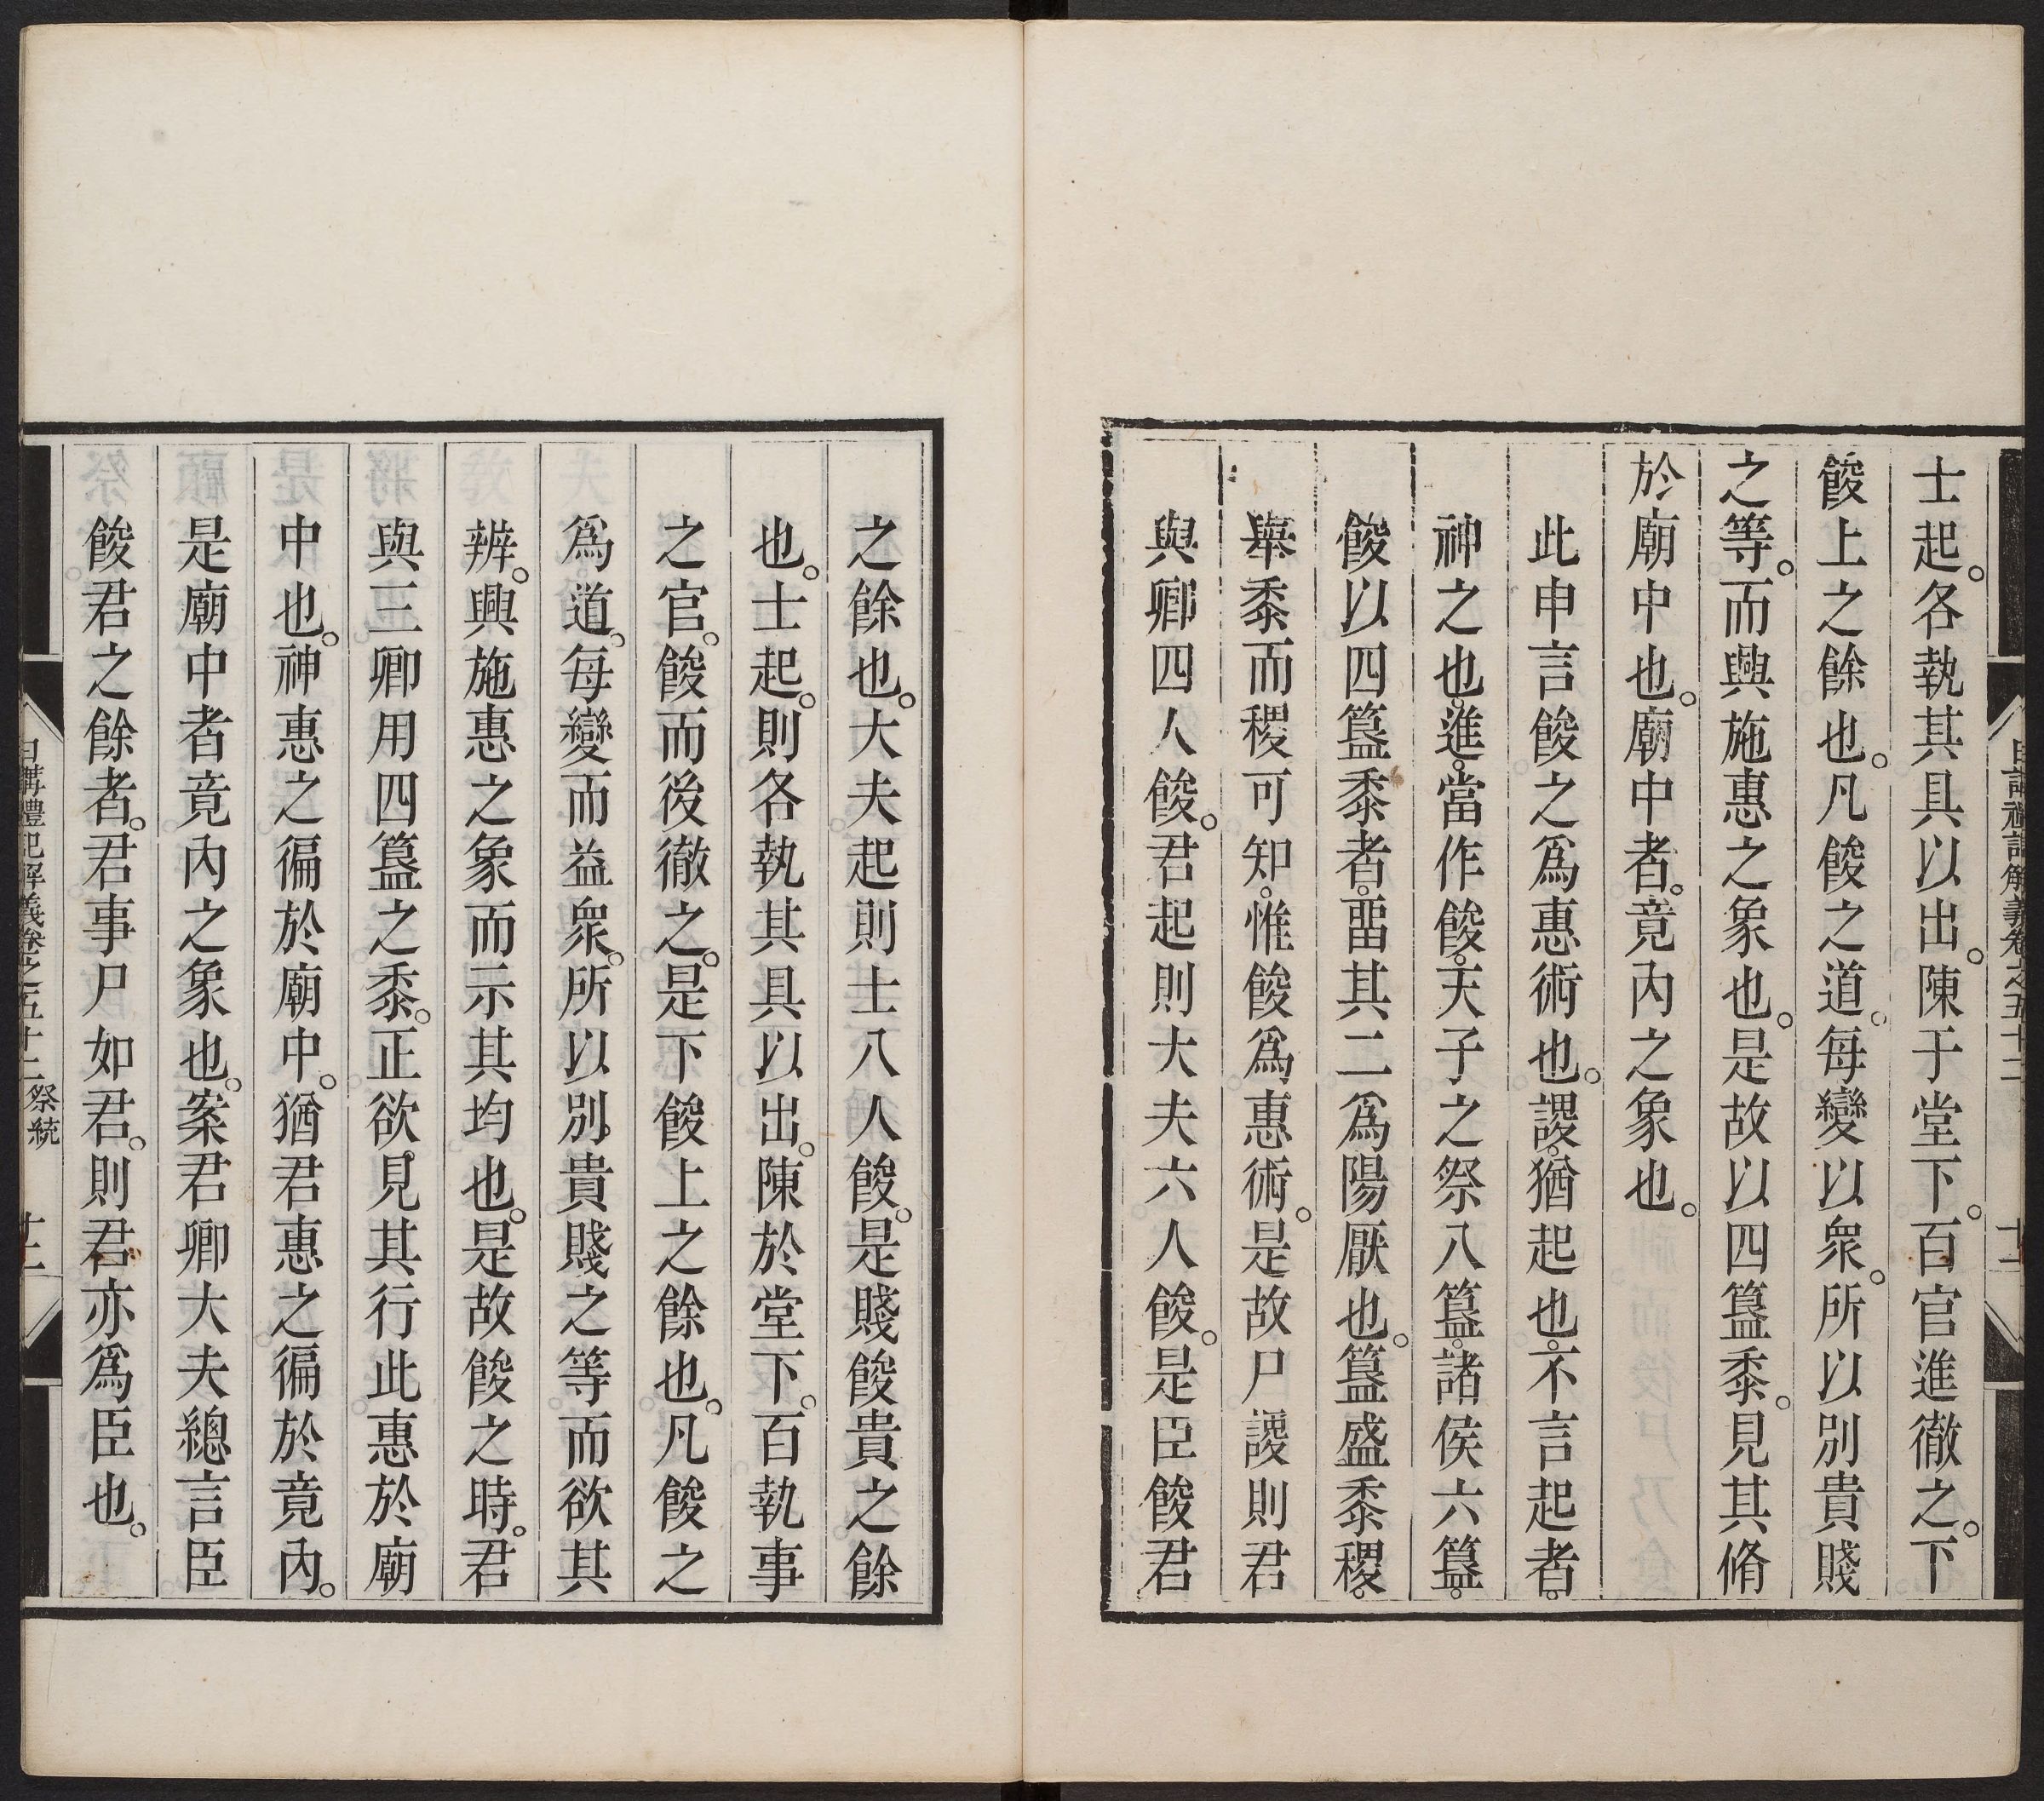 士起。各執其具以出。陳于堂下。百官進徹之。下
餕上之餘也。凡餕之道。每變以衆。所以別貴賤
之等。而興施惠之象也。是故以四簋黍。見其脩
於廟中也。廟中者。竟內之象也。
此申言餕之爲惠術也。謖。猶起也。不言起者。
神之也。進。當作餕。天子之祭八簋。諸侯六簋。
餕以四簋黍者。畱其二爲陽厭也。簋盛黍稷。
舉黍而稷可知。惟餕爲惠術。是故尸謖則君
與卿四人餕。君起則大夫六人餕。是臣餕君
之餘也。大夫起則士八人餕。是賤餕貴之餘
也。士起。則各執其具以出。陳於堂下。百執事
之官。餕而後徹之。是下餕上之餘也。凡餕之
爲道。每變而益衆。所以別貴賤之等而欲其
辨。興施惠之象而示其均也。是故餕之時。君
與三卿用四簋之黍。正欲見其行此惠於廟
中也。神惠之徧於廟中。猶君惠之徧於竟內。
是廟中者竟內之象也。案君卿大夫總言臣
餕君之餘者。君事尸如君。則君亦爲臣也。
日講禮記解義卷之五十二 祭統 十二